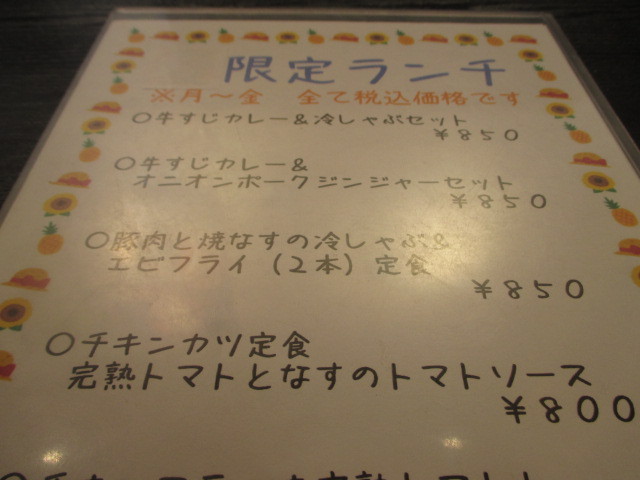 限定ランチ
※月~金 全て税込価格です
○牛すじカレー&冷しゃぶセット
¥850
○牛すじカレー&
オニオンポークジンジャーセット
¥850
○豚肉と焼なすの冷しゃぶ&
エビフライ（2本）定食
¥850
○チキンカツ定食
完熟トマトとなすのトマトソース
¥800